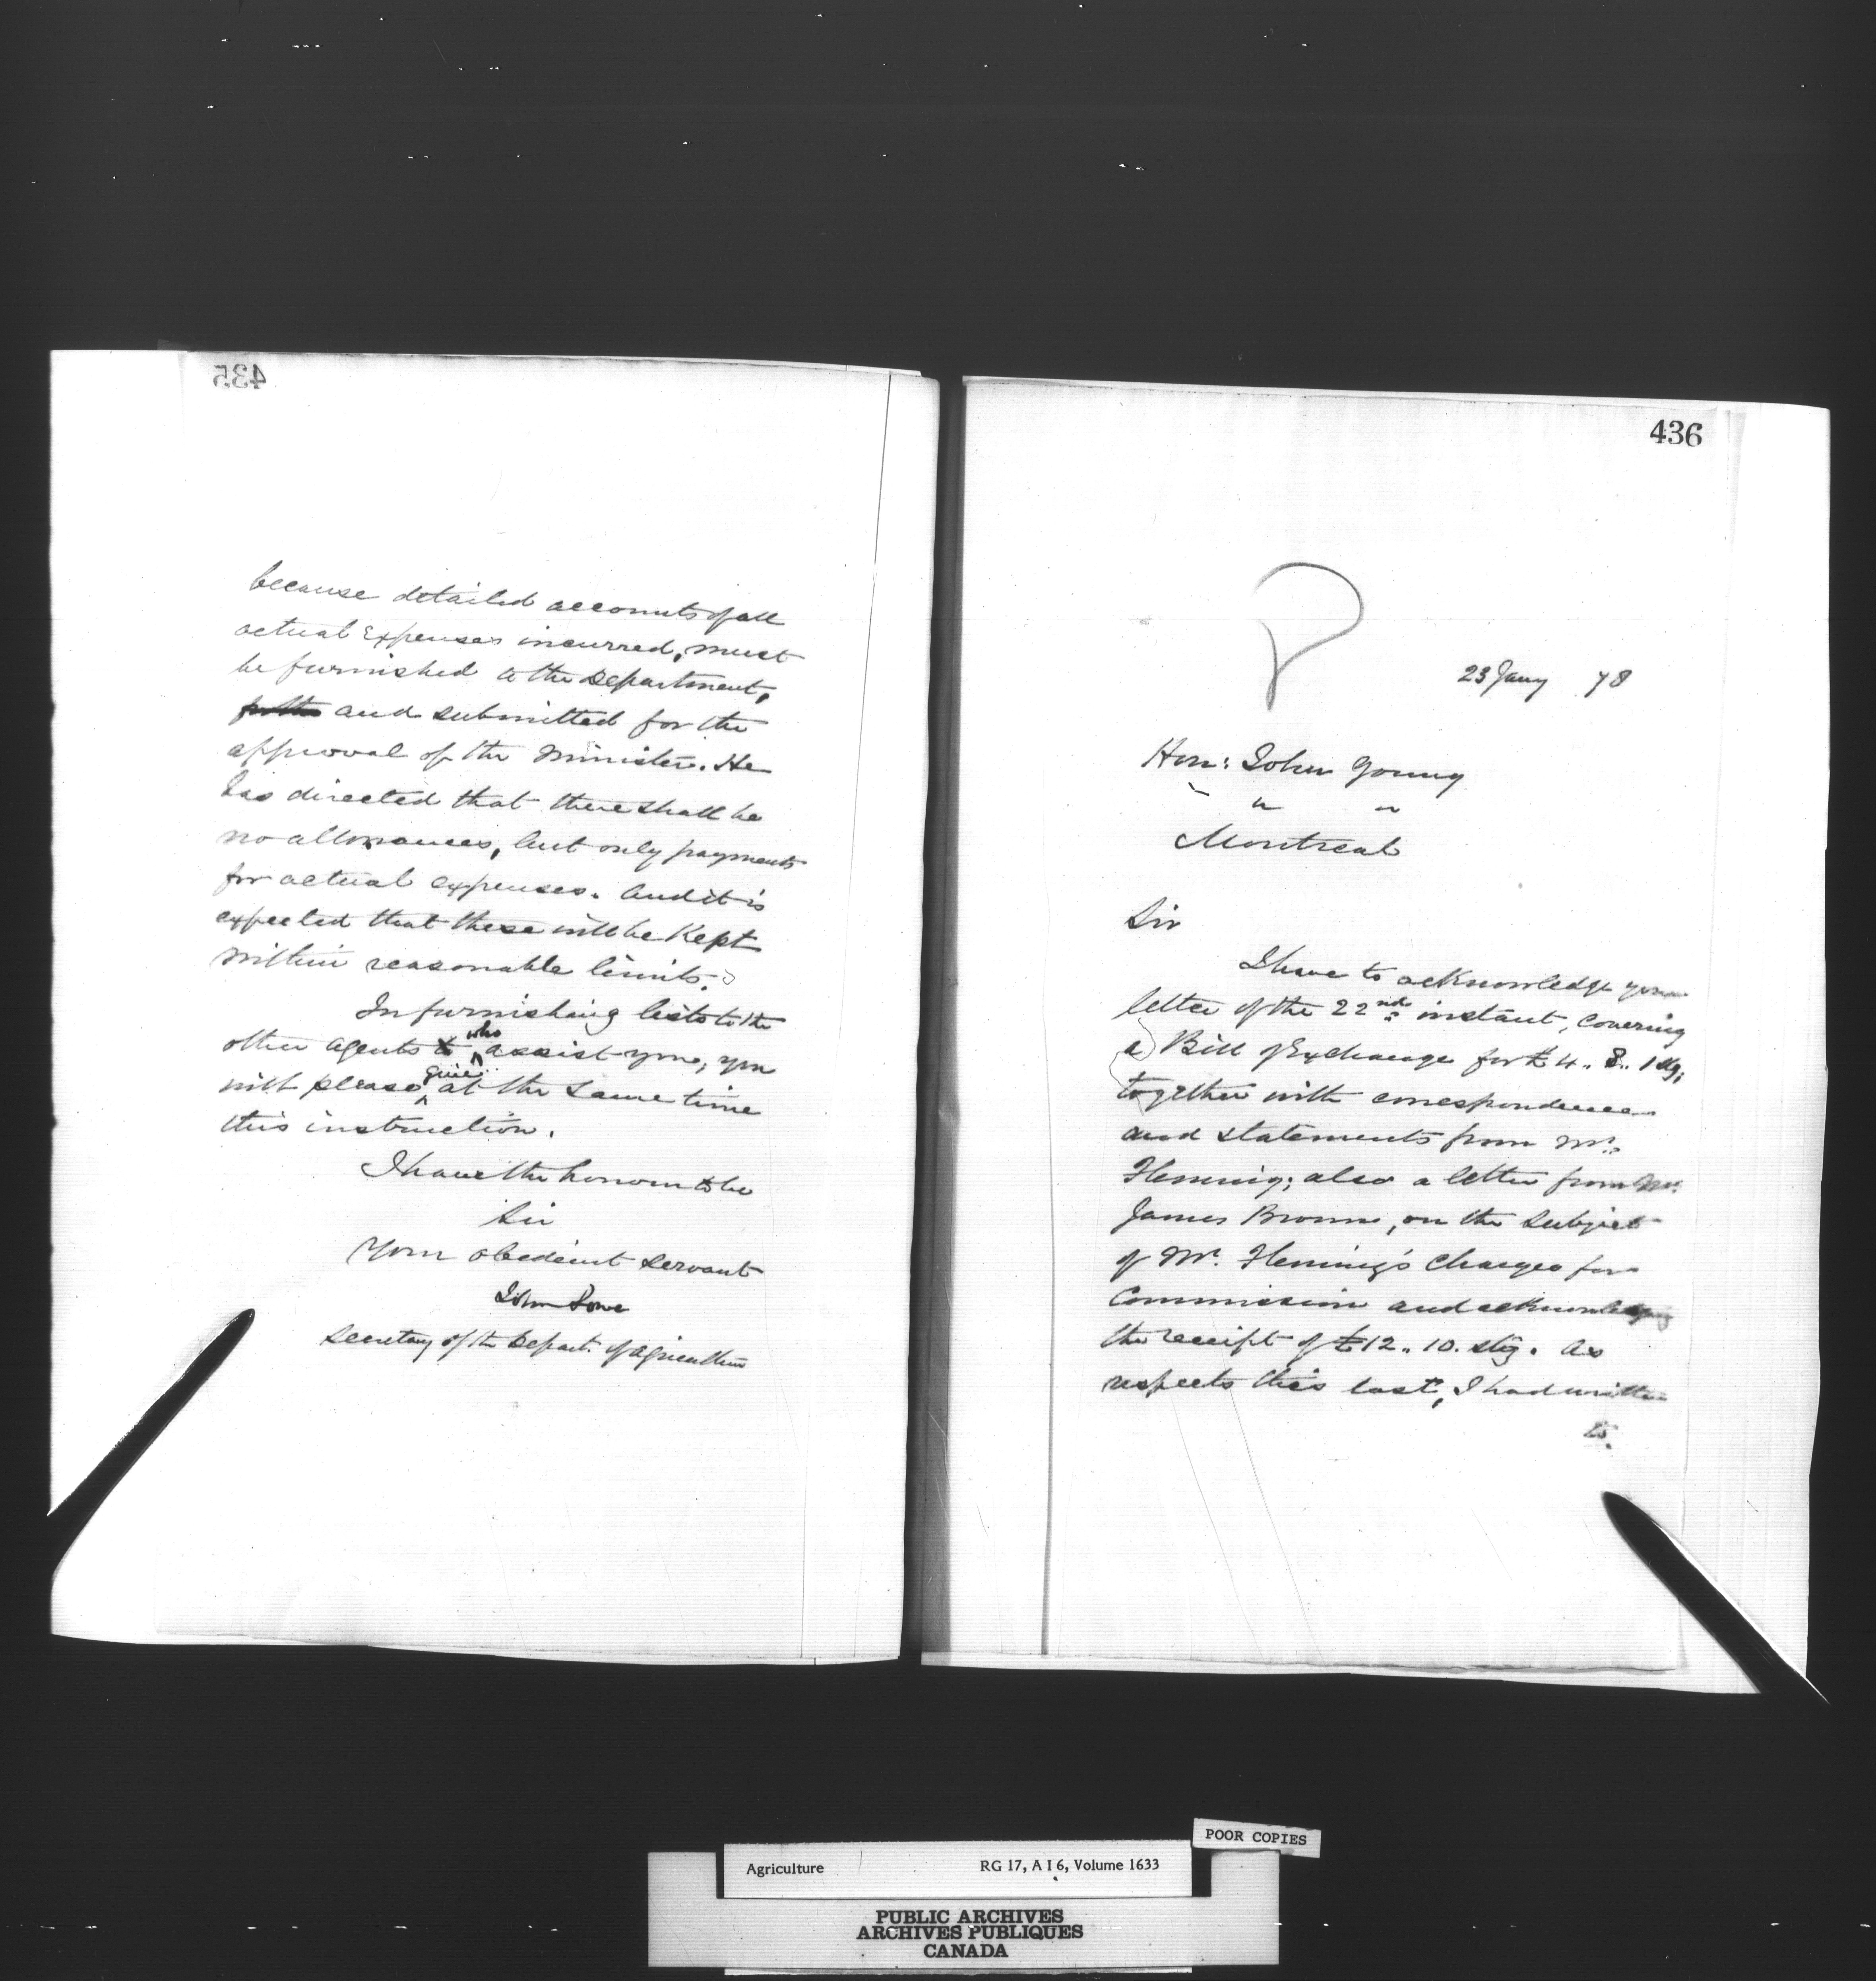 435
because detailed accounts of all
actual expenses incurred, must
be furnished to the Department,
and submitted for the
approval of the Minister. He
has directed that there shall be
no allowances, but only payments
for actual expenses. And it is
expected that these will be kept
within reasonable limits.
In furnishing lists to the
other agents who assist you, you
will please give at the same time
this instruction.
I have the honour to be
Sir
Your obedient servant
John Lowe
Secretary of the Depart. of Agriculture
436
23 Jany 78
Hon: John Young
" " "
Montreal
Sir
I have to acknowledge your
letter of the 22nd instant, covering
a Bill of Exchange for £4.. 8.. 1 stg,
together with correspondence
and statements from Mr.
Fleming; also a letter from Mr.
James Brown, on the subject
of Mr. Fleming's charges for
Commission and acknowledging
the receipt of £12.. 10. stg. As
respects this last, I had written
to
POOR COPIES
Agriculture RG 17, A I 6, Volume 1633
PUBLIC ARCHIVES
ARCHIVES PUBLIQUES
CANADA